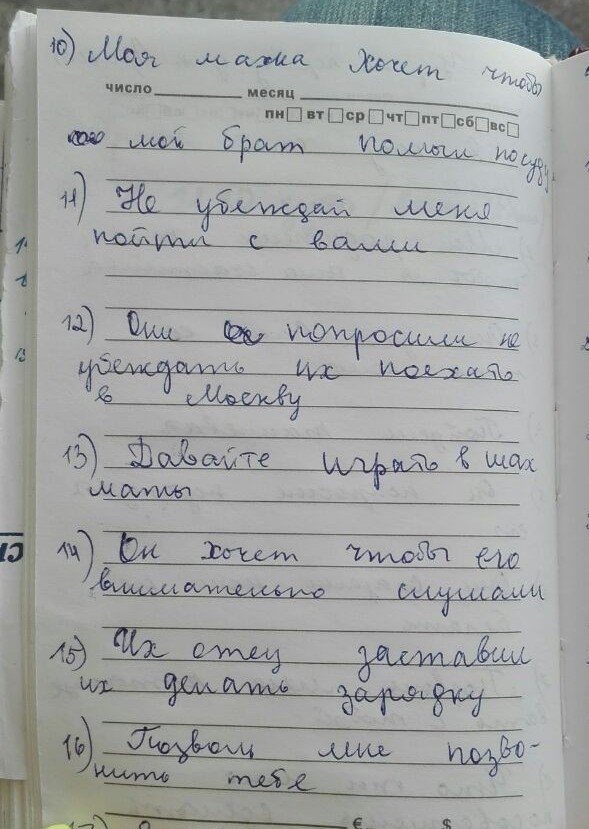 10) Моя мама хочет чтобы
число месяц
пн вт ср чт пт сб вс
мой брат помыл посуду
11) Не убеждай меня
пойти с вами
12) Они попросили не
убеждать их поехать
в Москву
13) Давайте играть в шах
маты
14) Он хочет чтобы его
внимательно слушали
15) Их отец заставил
их делать зарядку
16) Позволь мне позво-
нить тебе
17)
€ $